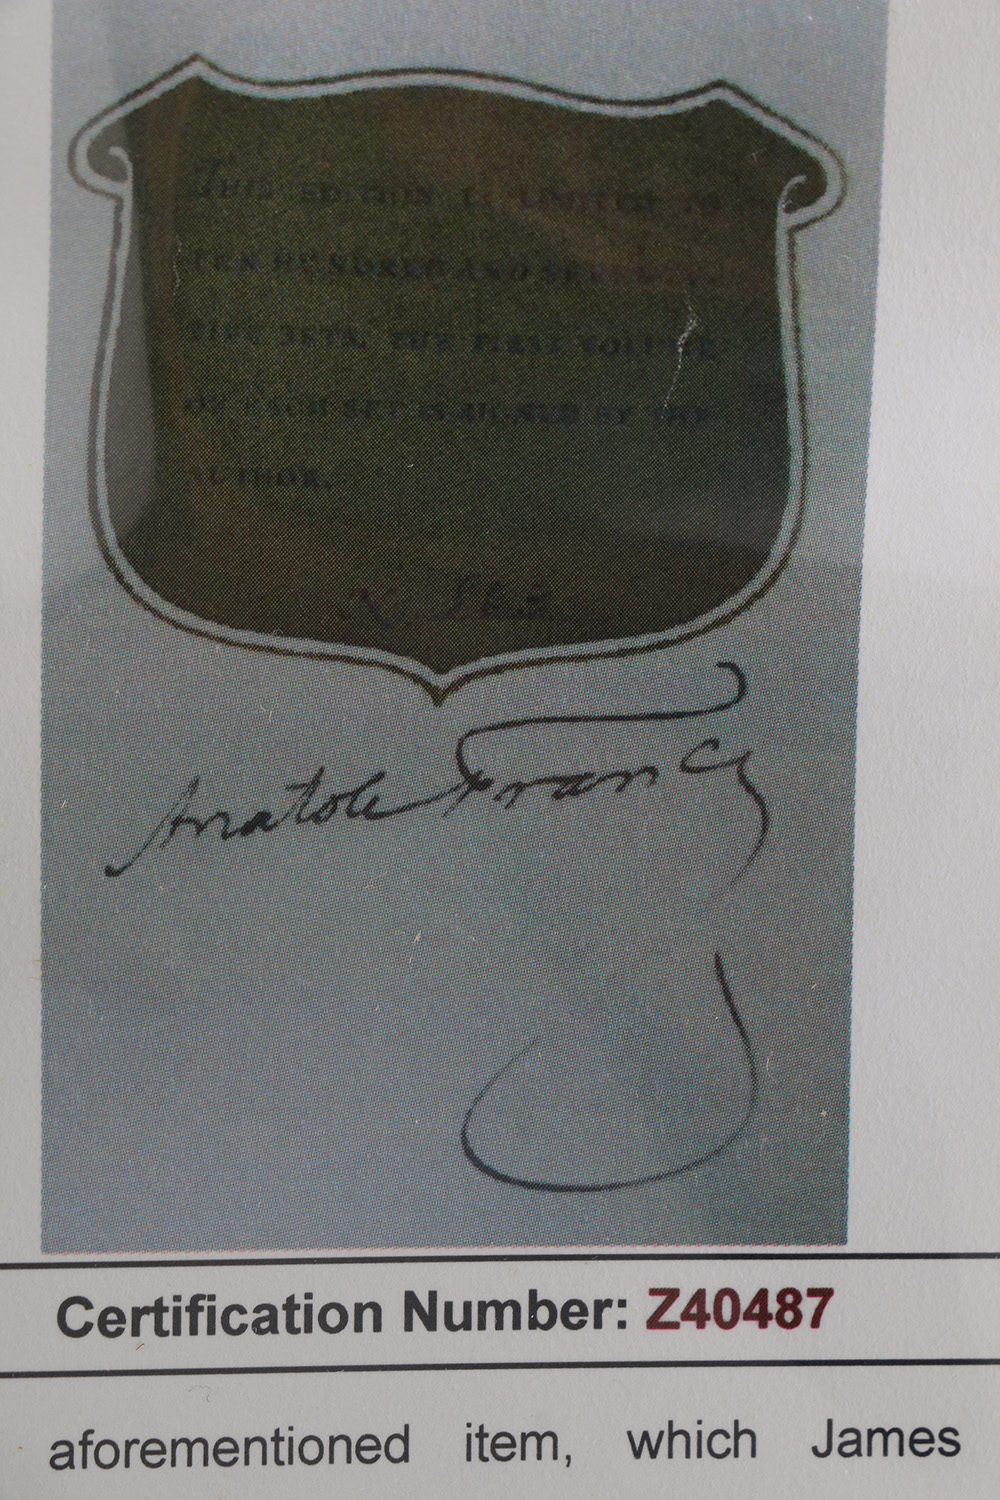 THIS EDITION IS LIMITED TO
TEN HUNDRED AND SEVENTY-
FIVE SETS. THE FIRST VOLUME
OF EACH SET IS SIGNED BY THE
AUTHOR.
Anatole France
Certification Number: Z40487
aforementioned item, which James